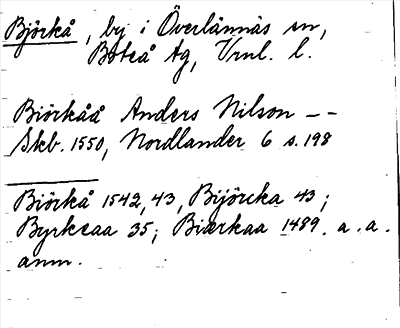 Björkå, by i Överlännäs sn,
Boteå tg, Vrnl. l.
Biörkåå Anders Nilson – –
Skb. 1550, Nordlander 6 s. 198
Biörkå 1542, 43, Bijörcka 43;
Byrkeaa 35; Biærkaa 1489. a. a.
anm.